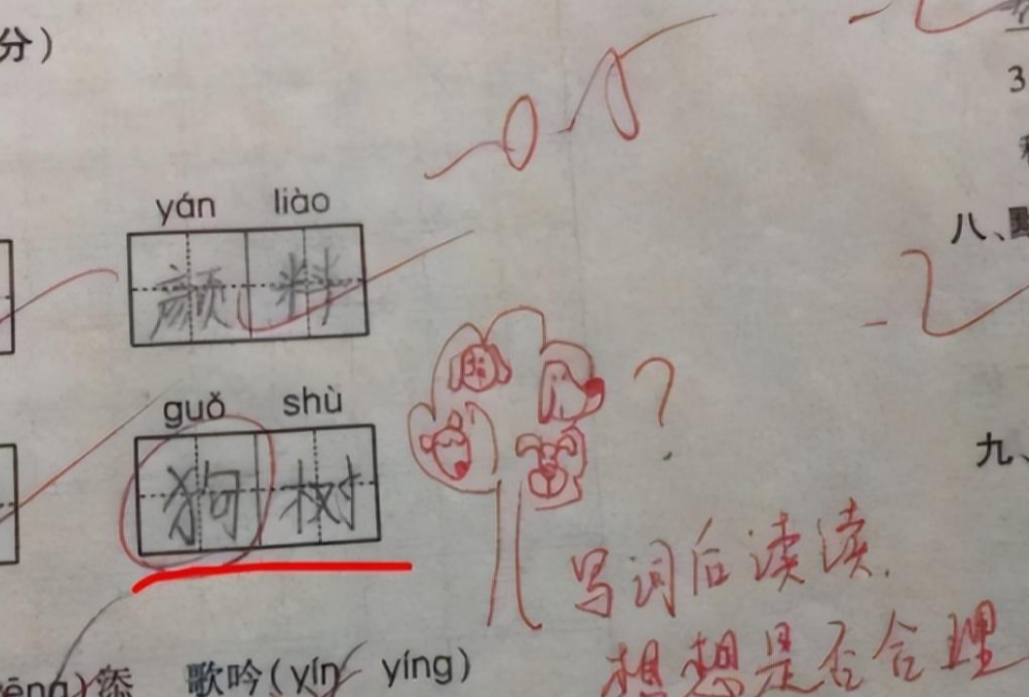 分)
3
yán liào
颜料
八、
guǒ shù
狗树
?
九、
写词后读读.
想想是否合理
添 歌吟(yín yíng)